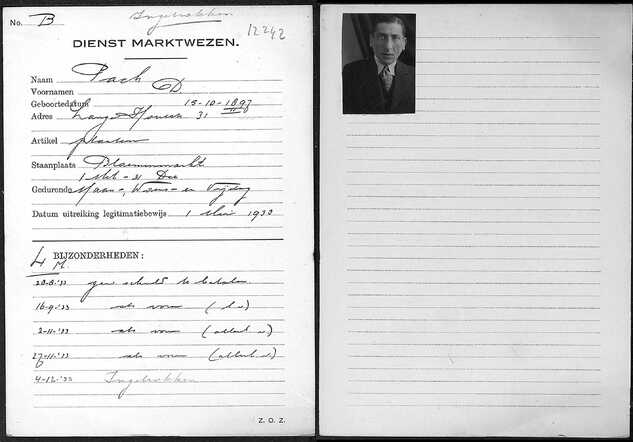 Ingetrokken
No. B
12242
DIENST MARKTWEZEN.
Naam Pach
Voornamen D
Geboortedatum 15-10-1897
Adres Lange 31 II
Artikel planten
Staanplaats Bloemenmarkt
1 - 31 Dec
Gedurende Maan-, Woens- en Vrijdag
Datum uitreiking legitimatiebewijs 1 1933
4 BIJZONDERHEDEN:
M.
28-8-'33 geen schuld te betalen
16-9-'33 als voren
2-11-'33 als voren
27-11-'33 als voren
4-12-'33 Ingetrokken
Z. O. Z.